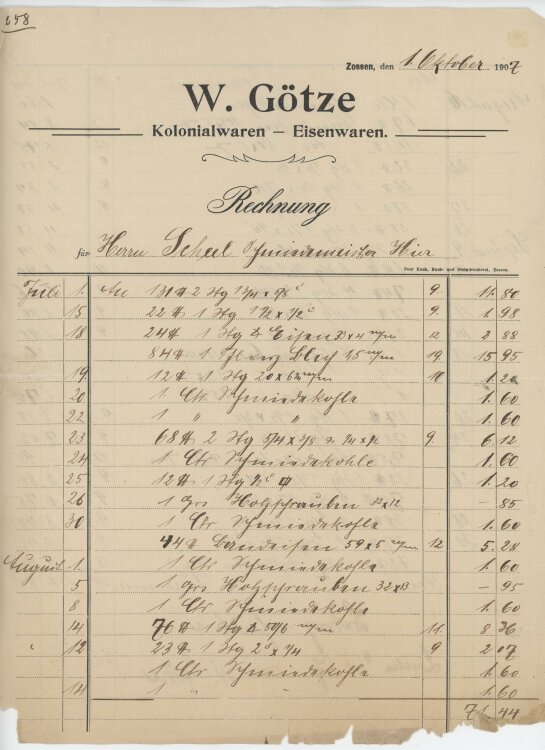 258
Zossen, den 1. Oktober 1907
W. Götze
Kolonialwaren – Eisenwaren.
Rechnung
für Herrn Scheel Schmiedemeister Hier
Paul Koch, Buch- und Steindruckerei, Zossen.
Juli 1. An 131 ℔ 2 Stg 9 11.80
15 22 ℔ 1 Stg 9. 1.98
18 24 ℔ 1 Stg Eisen 12 2 88
84 ℔ 1 Schwarz Blech 1,5 m/m 19. 15 95
19. 12 ℔ 1 Stg 20 x 6 m/m 10 1.20
20 1 Ctr Schmiedekohle 1.60
22 1 " " 1.60
23 68 ℔ 2 Stg 9 6.12
24 1 Ctr Schmiedekohle 1.60
25 12 ℔ 1 Stg 1.20
26 1 Grs Holzschrauben 32 x 12 – 85
30 1 Ctr Schmiedekohle 1.60
44 ℔ Bandeisen 59 x 5 m/m 12 5.28
August 1. 1 Ctr Schmiedekohle 1.60
5 1 Grs Holzschrauben 32 x 13 – 95
8 1 Ctr Schmiedekohle 1.60
14 76 ℔ 1 Stg 50/6 m/m 11. 8 36
" 12 23 ℔ 1 Stg 9 2 07
1 Ctr Schmiedekohle 1.60
14 1 " " 1.60
71.44